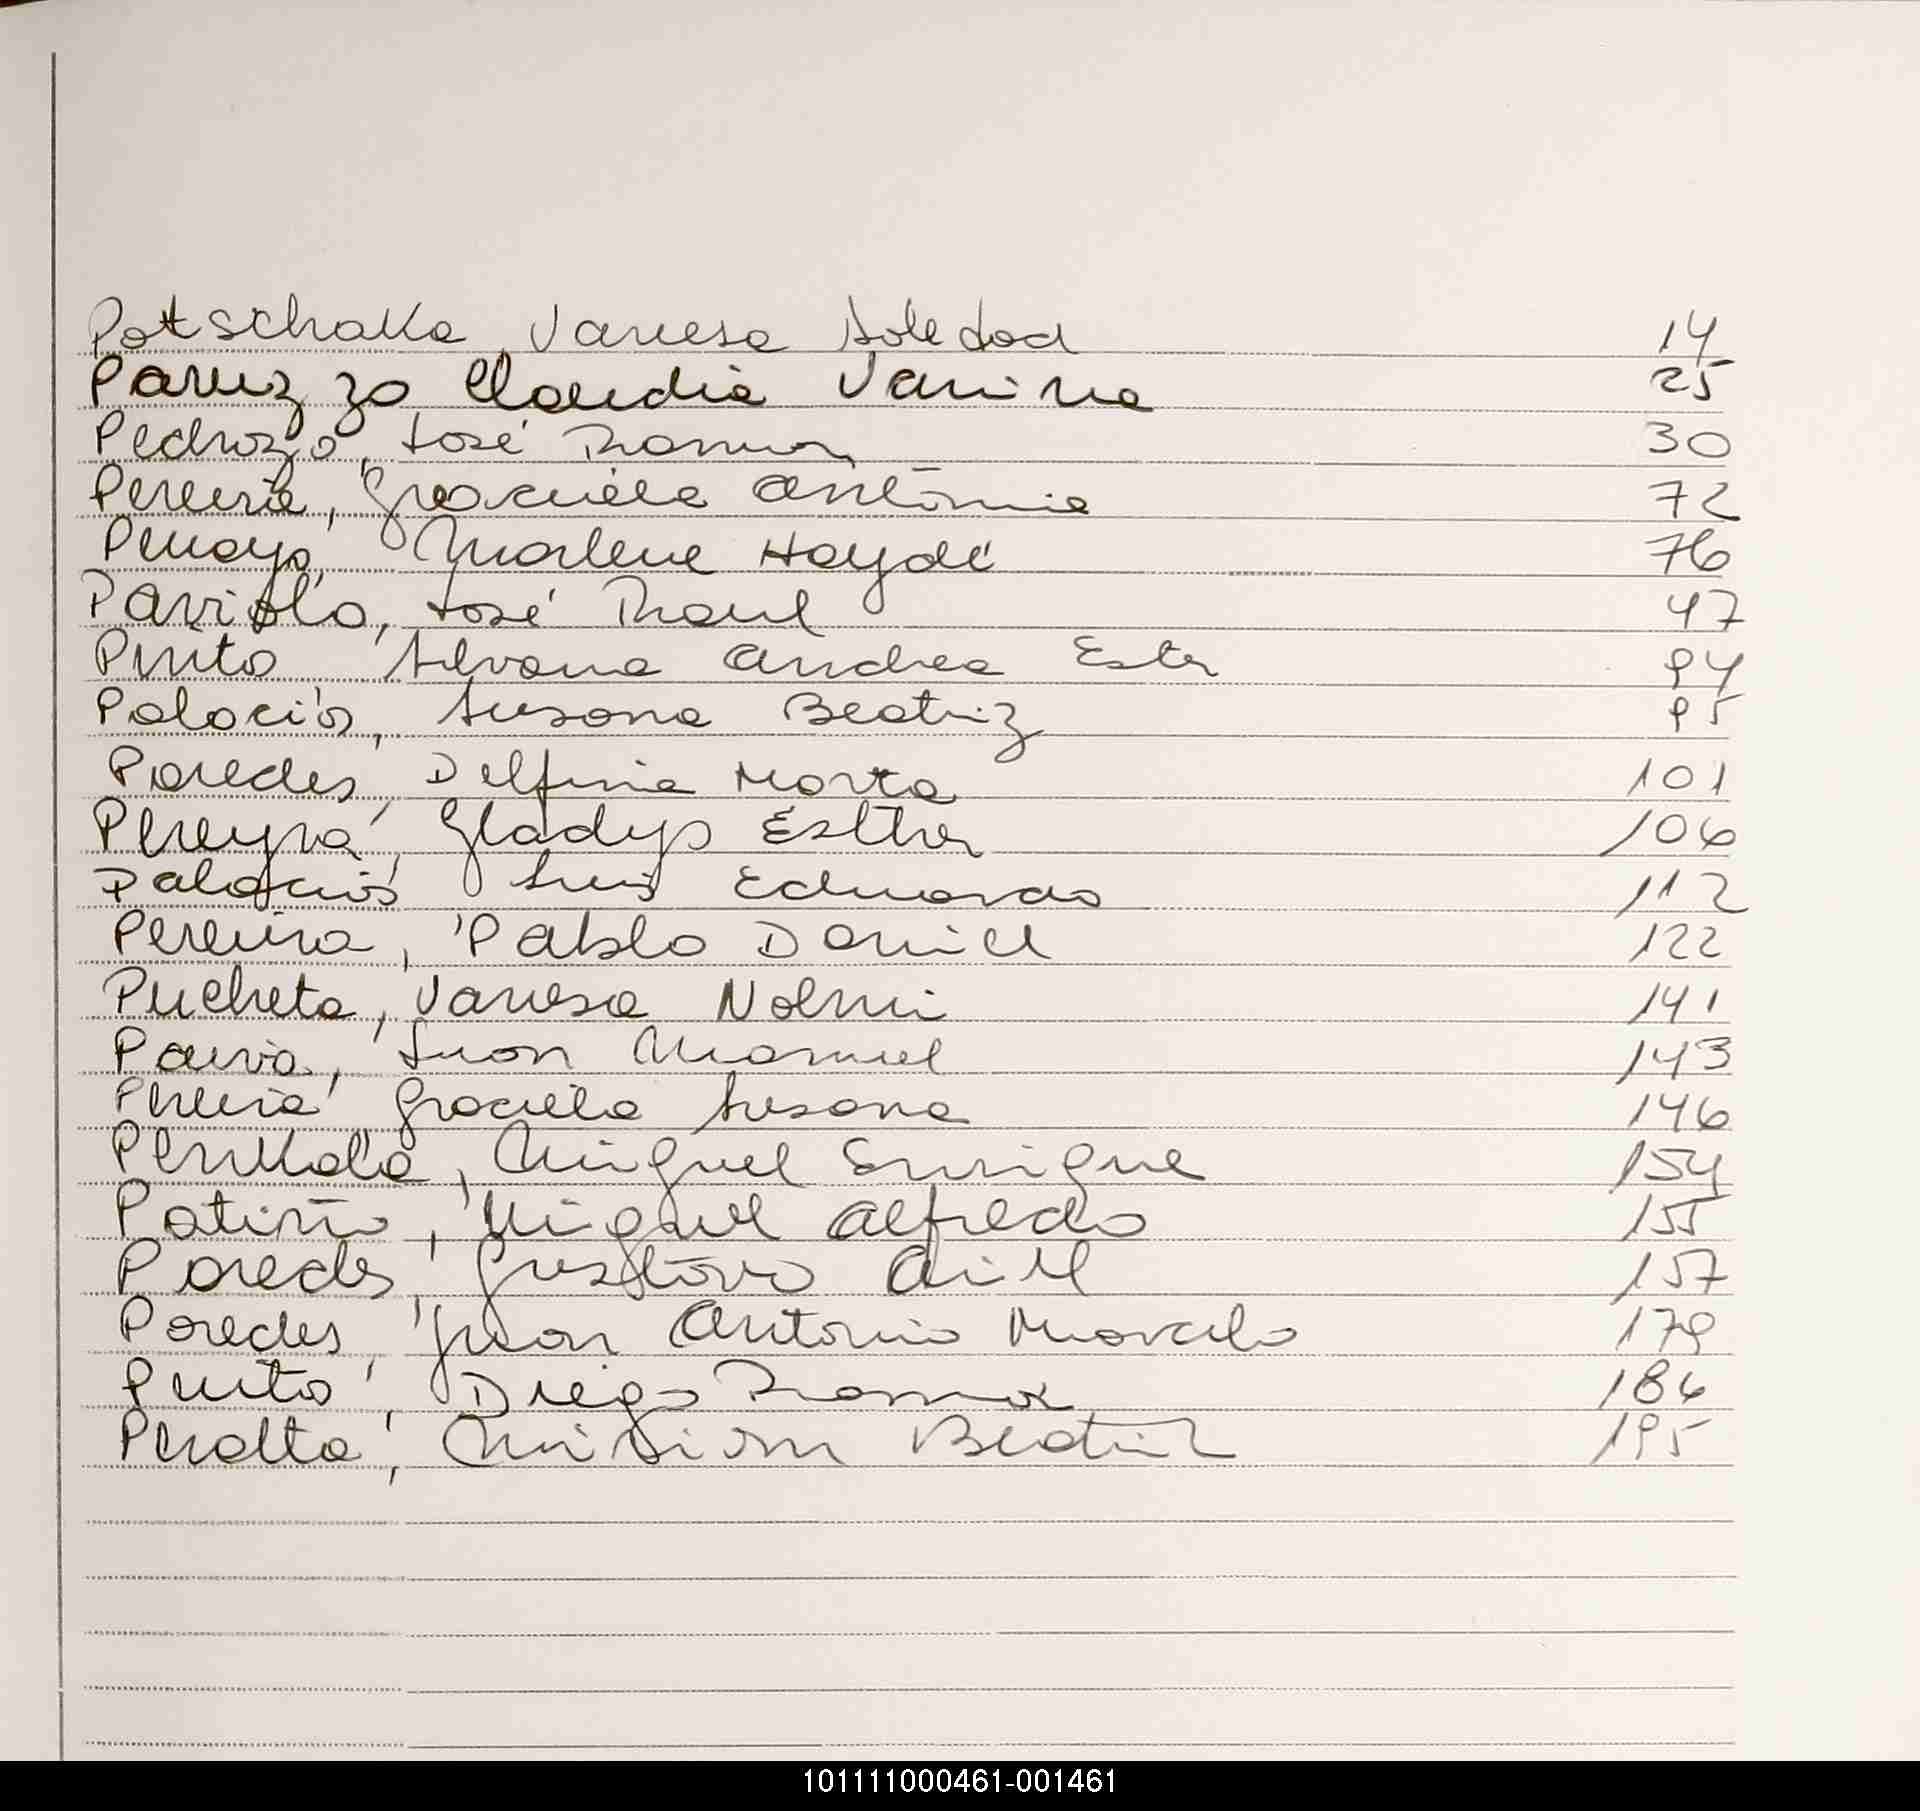 Potschaka, Vanesa Soledad 14
Paruzzo Claudia Vanina 25
Pedrozo, José Ramon 30
Pereira, Graciela Antonia 72
Penayo, Marlene Haydé 76
Paviolo, José Raul 47
Pinto Silvana Andrea Ester 94
Palacios, Susana Beatriz 95
Paredes, Delfina Marta 101
Pereyra, Gladys Esther 106
Palacios Luis Eduardo 112
Pereira, Pablo Daniel 122
Pucheta, Vanesa Noemi 141
Paiva, Juan Manuel 143
Pereira Graciela Susana 146
Miguel Enrique 154
Patiño, Miguel Alfredo 155
Paredes, Gustavo Ariel 157
Paredes, Juan Antonio Marcelo 179
Pinto, Diego Ramon 186
Peralta, Miriam Beatriz 195
101111000461-001461